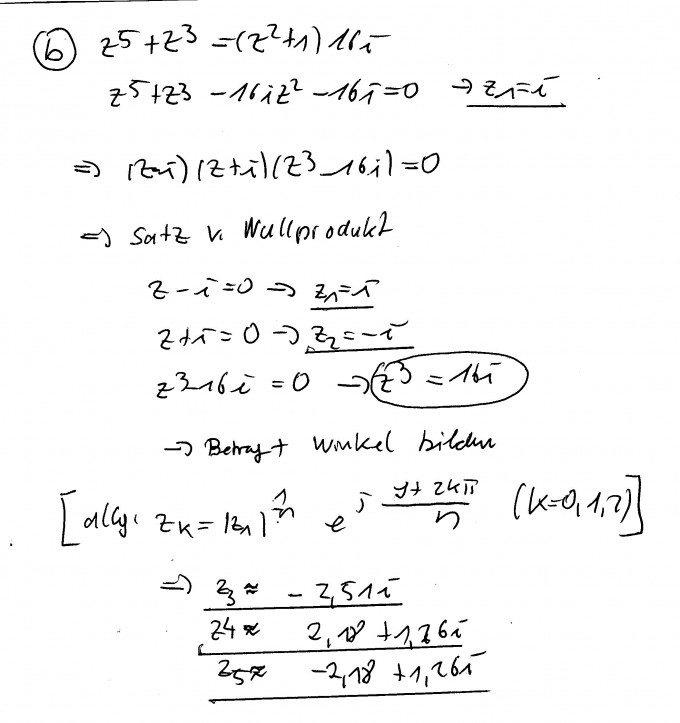 (b) z^5 + z^3 = (z^2+1) 16i
z^5 + z^3 - 16iz^2 - 16i = 0 → z_1 = i
⇒ (z-i)(z+i)(z^3-16i) = 0
⇒ Satz v. Nullprodukt
z - i = 0 → z_1 = i
z + i = 0 → z_2 = -i
z^3-16i = 0 → z^3 = 16i
→ Betrag + Winkel bilden
[allg: z_k = |z_n|^{1/n} e^{j (φ + 2kπ)/n} (k=0,1,2)]
⇒ z_3 ≈ - 2,51i
z4 ≈ 2,18 + 1,26i
z_5 ≈ -2,18 + 1,26i